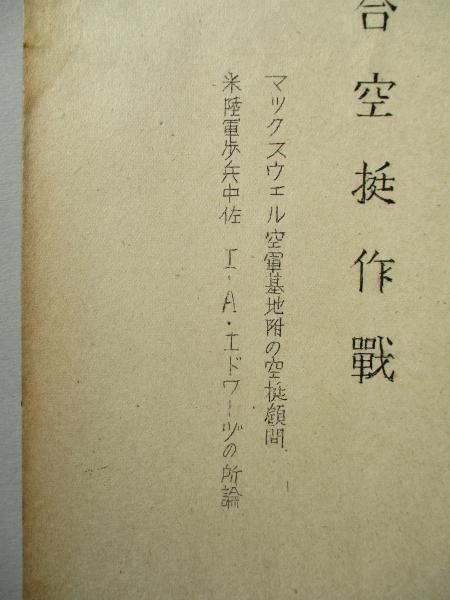 合空挺作戰
マックスウェル空軍基地附の空挺顧問
米陸軍歩兵中佐 I・A・エドワーヅの所論